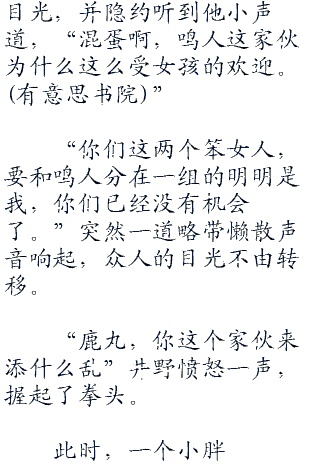 目光，并隐约听到他小声
道，“混蛋啊，鸣人这家伙
为什么这么受女孩的欢迎。
(有意思书院)”
“你们这两个笨女人，
要和鸣人分在一组的明明是
我，你们已经没有机会
了。”突然一道略带懒散声
音响起，众人的目光不由转
移。
“鹿丸，你这个家伙来
添什么乱”井野愤怒一声，
握起了拳头。
此时，一个小胖